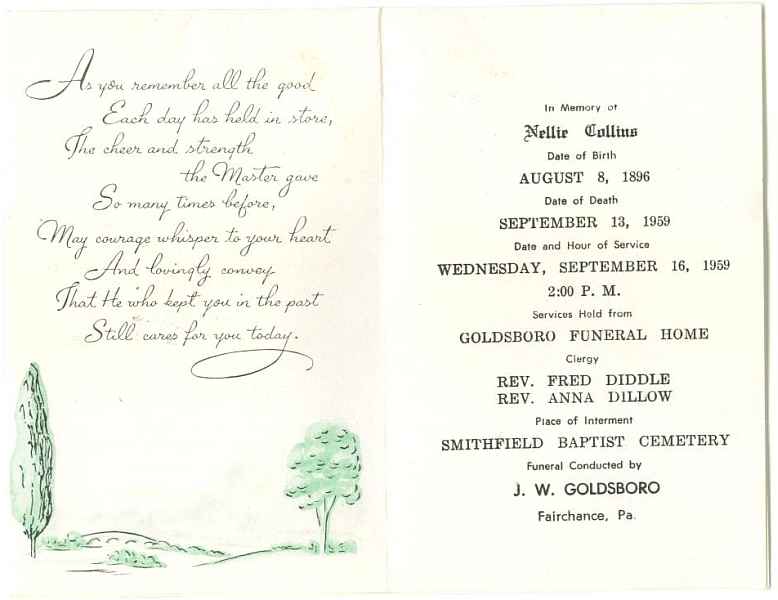 As you remember all the good
Each day has held in store,
The cheer and strength
the Master gave
So many times before,
May courage whisper to your heart
And lovingly convey
That He who kept you in the past
Still cares for you today.
In Memory of
Nellie Collins
Date of Birth
AUGUST 8, 1896
Date of Death
SEPTEMBER 13, 1959
Date and Hour of Service
WEDNESDAY, SEPTEMBER 16, 1959
2:00 P. M.
Services Held from
GOLDSBORO FUNERAL HOME
Clergy
REV. FRED DIDDLE
REV. ANNA DILLOW
Place of Interment
SMITHFIELD BAPTIST CEMETERY
Funeral Conducted by
J. W. GOLDSBORO
Fairchance, Pa.